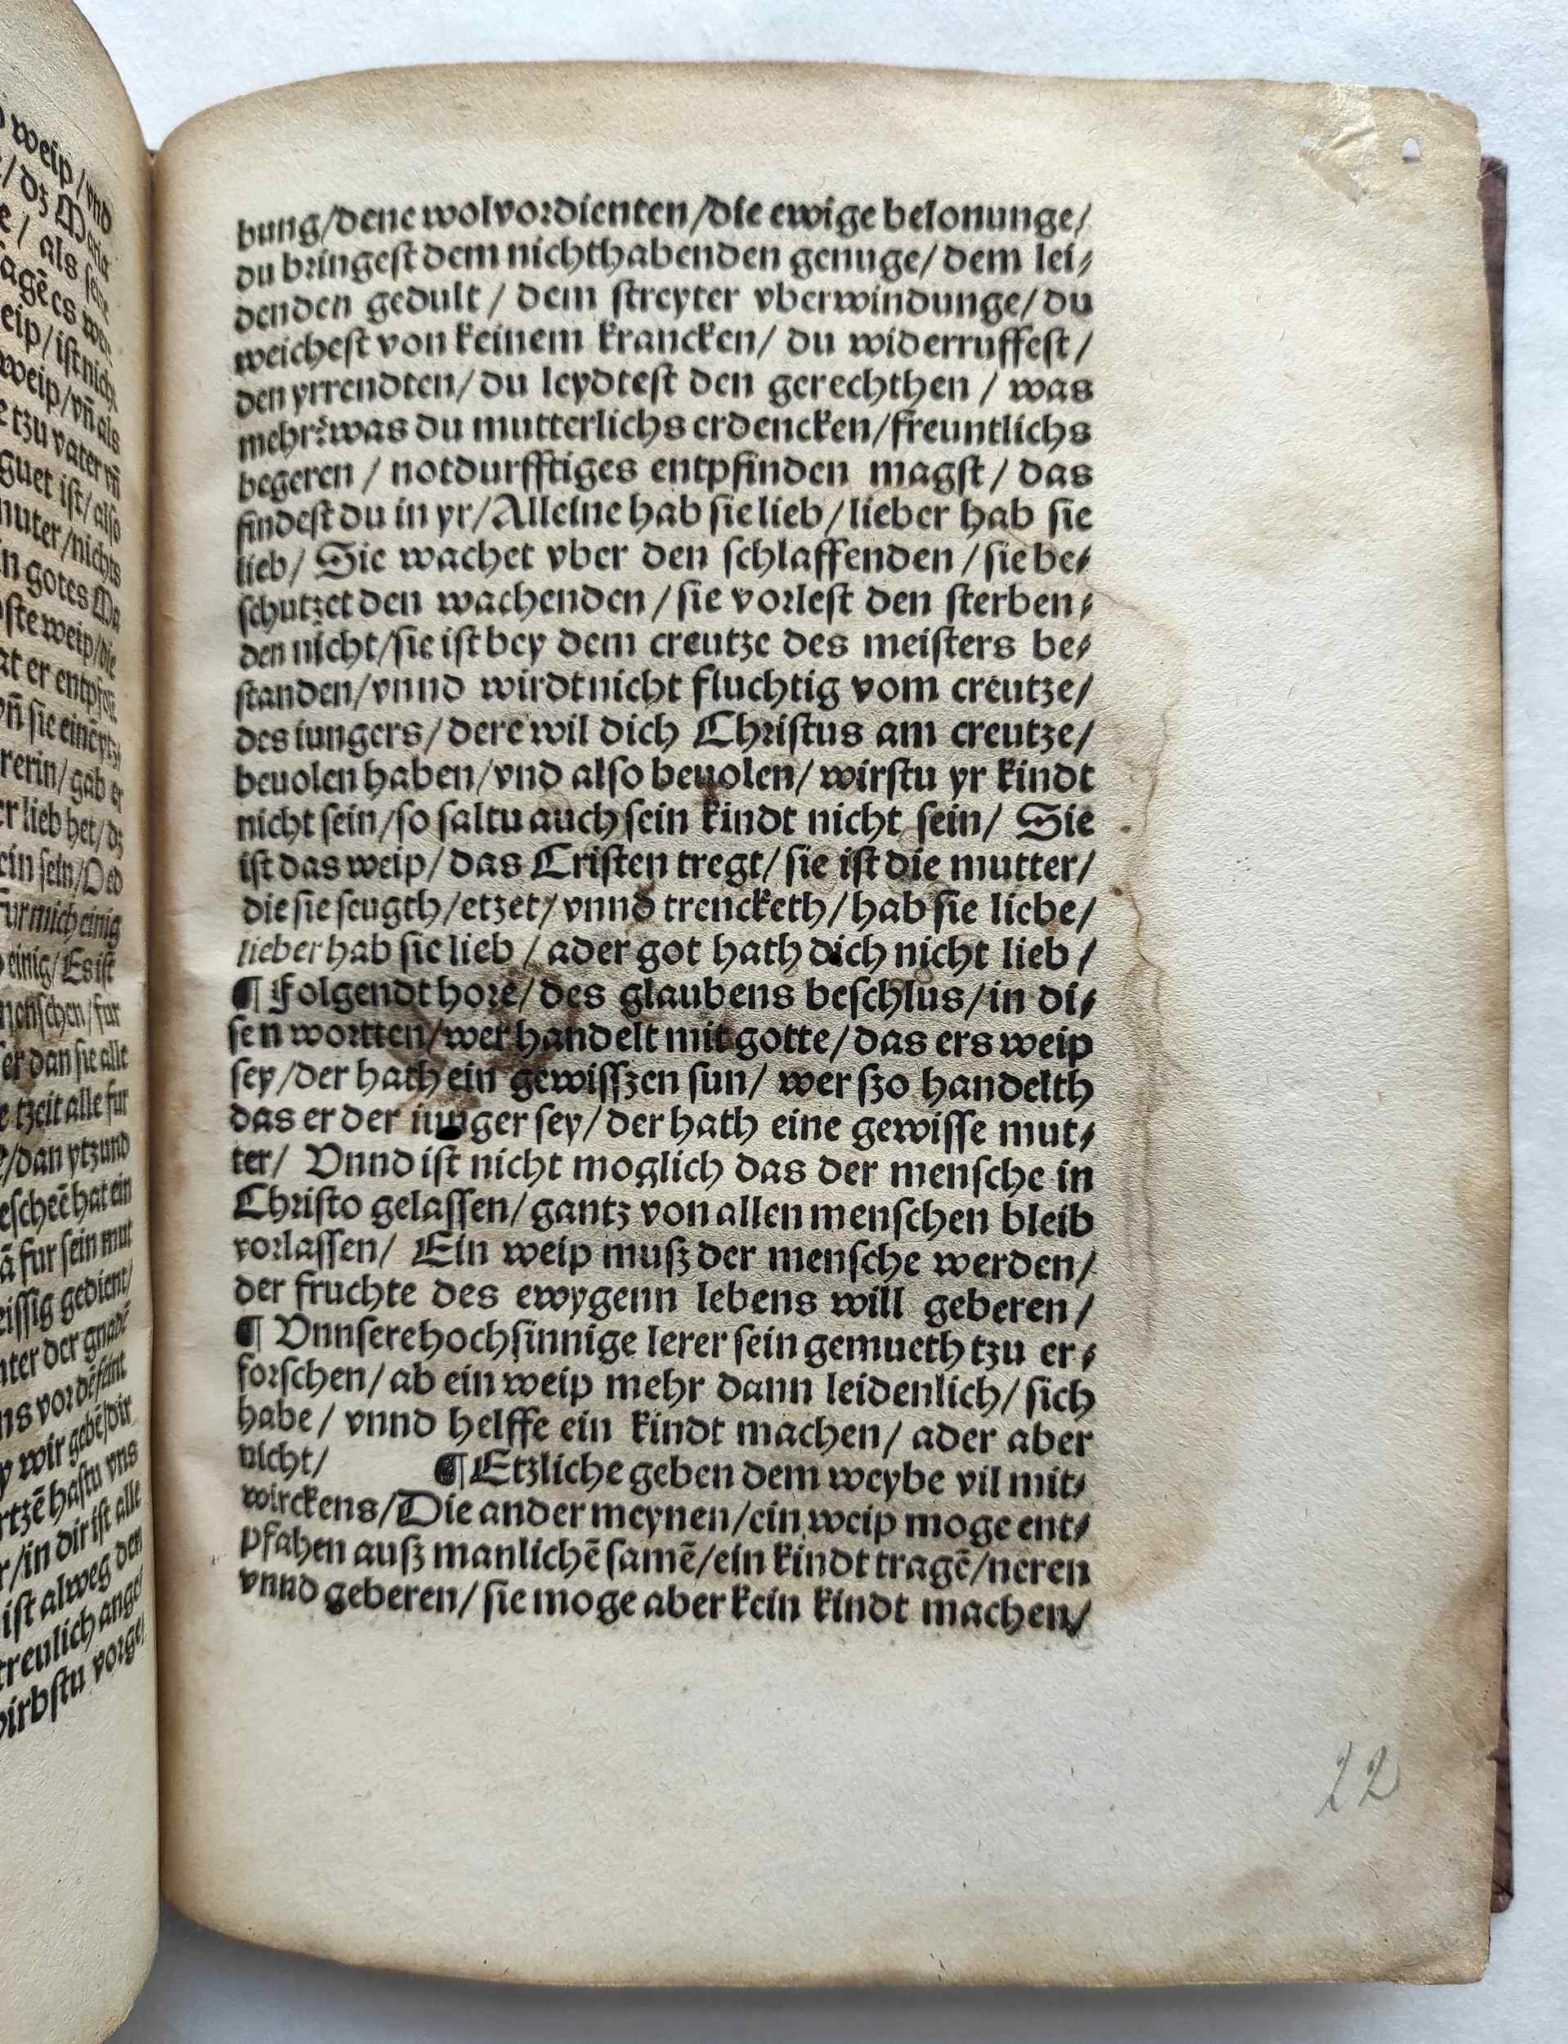 weip/vnd
/dz Maria
e/ als
eip/ist nicht
weip/vn̄ als
e tzu vater vn̄
guet ist/also
muter/nichts
in gotes
ste weip/die
at er
vn̄ sie
rerin/gab er
er lieb het/dz
ein sein/
fur mich einig
einig/Es ist
menschen/fur
ser dan sie alle
e tzeit alle fur
/dan ytzund
escheē hat ein
ā fur sein mut
eissig gedient/
nter der gnadē
ns vor
y wir gebē/dir
rtzē hastu vns
r/in dir ist alle
ist alweg den
treulich ange/
wirbstu vorge/
bung/dene wolvordienten/die ewige belonunge/
du bringest dem nichthabenden genuge/dem lei⸗
denden gedult/ dem streyter vberwindunge/du
weichest von keinem krancken/ du widerruffest/
den yrrendten/du leydtest den gerechthen/ was
mehr? was du mutterlichs erdencken/freuntlichs
begeren/ notdurfftiges entpfinden magst/ das
findest du in yr/Alleine hab sie lieb/lieber hab sie
lieb/ Sie wachet vber den schlaffenden/sie be⸗
schutzet den wachenden/sie vorlest den sterben⸗
den nicht/sie ist bey dem creutze des meisters be⸗
standen/vnnd wirdt nicht fluchtig vom creutze/
des iungers/dere wil dich Christus am creutze/
beuolen haben/vnd also beuolen/wirstu yr kindt
nicht sein/so saltu auch sein kindt nicht sein/ Sie
ist das weip/das Cristen tregt/sie ist die mutter/
die sie seugth/etzet/vnnd trencketh/hab sie liebe/
lieber hab sie lieb/ader got hath dich nicht lieb/
¶ Folgendt hore/des glaubens beschlus/in di⸗
sen wortten/wer handelt mit gotte/das ers weip
sey/der hath ein gewisſzen sun/ wer szo handelth
das er der iunger sey/der hath eine gewisse mut⸗
ter/ Vnnd ist nicht moglich das der mensche in
Christo gelassen/gantz von allen menschen bleib
vorlassen/ Ein weip musz der mensche werden/
der fruchte des ewygenn lebens will geberen/
¶ Vnnsere hochsinnige lerer sein gemueth tzu er⸗
forschen/ab ein weip mehr dann leidenlich/sich
habe/ vnnd helffe ein kindt machen/ader aber
nicht/ ¶ Etzliche geben dem weybe vil mit⸗
wirckens/Die ander meynen/ein weip moge ent⸗
pfahen ausz manlichē samē/ein kindt tragē/neren
vnnd geberen/sie moge aber kein kindt machen/
22